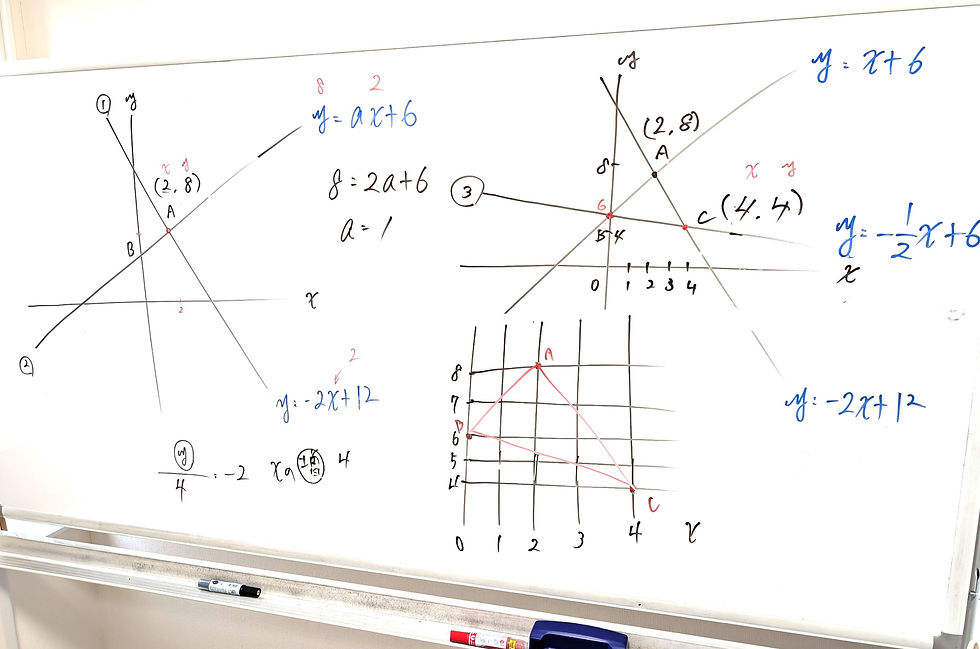 ①
y
8 2
y = ax+6
x y
(2, 8)
A
B
8 = 2a+6
a = 1
x
2
②
2
y = -2x+12
y/4 = -2
4
y
y = x+6
(2, 8)
A
8
③
6
x y
C (4, 4)
5 4
y = -1/2x+6
x
0 1 2 3 4
y = -2x+12
A
8
7
B
6
5
4
C
0 1 2 3 4 x